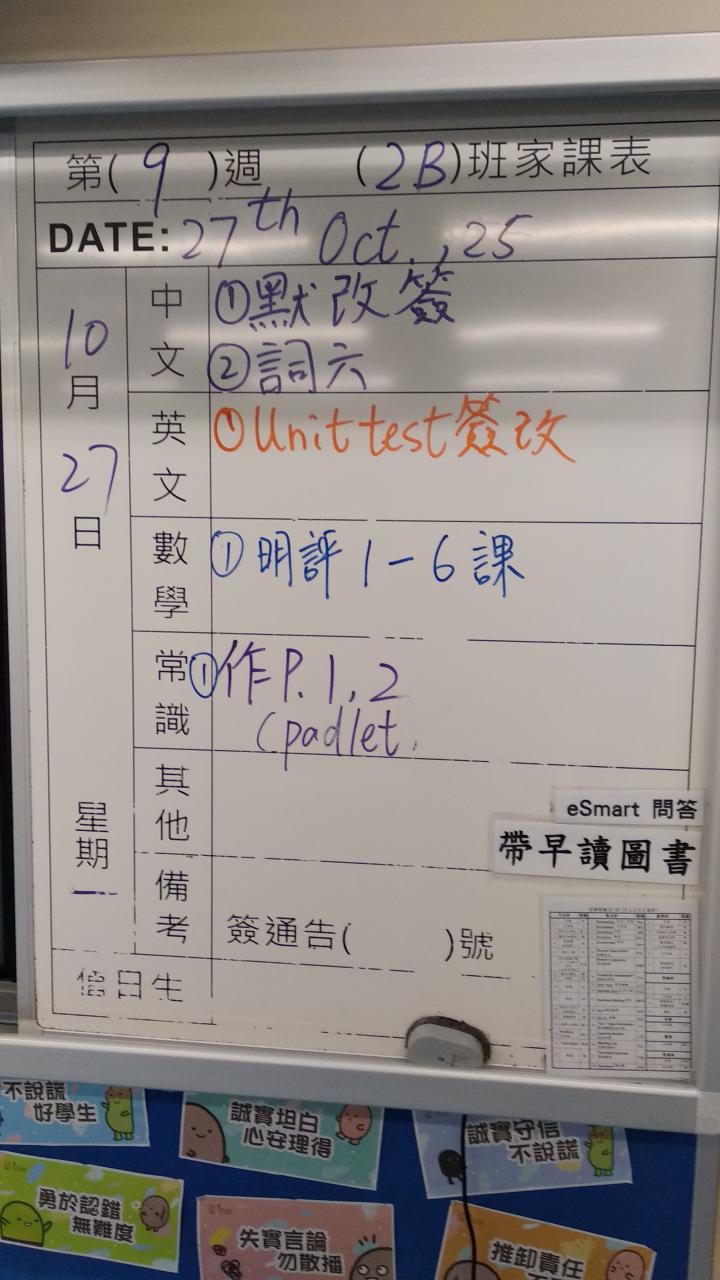 第( 9 )週 (2B)班家課表
DATE: 27th Oct., 25
10月27日 星期一
中文 ①默改簽
②詞六
英文 ①Unit test簽改
數學 ①明評1-6課
常識 ①作P.1,2
(padlet
其他
eSmart 問答
帶早讀圖書
備考 簽通告( )號
值日生
不說謊
好學生
誠實坦白
心安理得
誠實守信
不說謊
勇於認錯
無難度
失實言論
勿散播
推卸責任